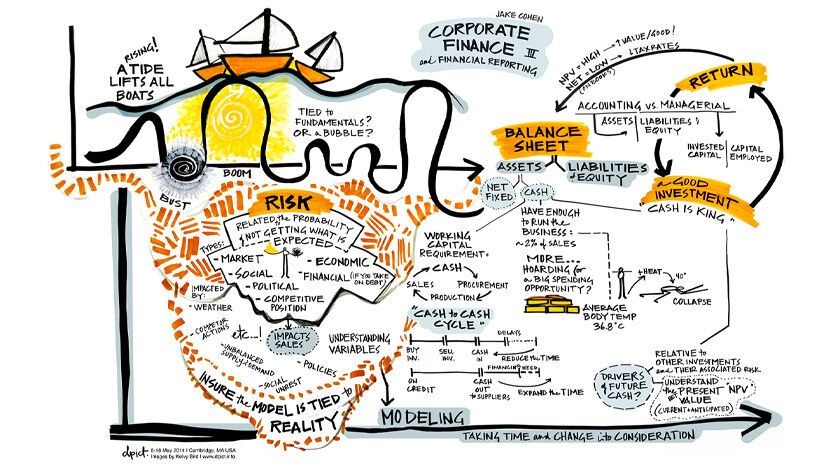 JAKE COHEN
CORPORATE
FINANCE III
and FINANCIAL REPORTING
RISING!
A TIDE
LIFTS ALL
BOATS
TIED TO
FUNDAMENTALS?
OR a BUBBLE?
BOOM
BUST
NPV = HIGH → ↑ VALUE/GOOD!
NET = LOW → ↓ TAX RATES
(ON BOOKS)
RETURN
ACCOUNTING vs. MANAGERIAL
ASSETS
LIABILITIES &
EQUITY
INVESTED
CAPITAL
CAPITAL
EMPLOYED
BALANCE
SHEET
ASSETS
LIABILITIES
& EQUITY
NET
FIXED
CASH
a GOOD
INVESTMENT
"CASH IS KING"
HAVE ENOUGH
to RUN the
BUSINESS:
~ 2% of SALES
MORE...
HOARDING for
a BIG SPENDING
OPPORTUNITY?
AVERAGE
BODY TEMP
36.8°C
+HEAT
40°
COLLAPSE
RISK
RELATED to the PROBABILITY
of NOT GETTING WHAT IS
EXPECTED
TYPES:
- MARKET
- SOCIAL
- POLITICAL
- COMPETITIVE
POSITION
- ECONOMIC
- FINANCIAL (IF YOU TAKE
ON DEBT)
IMPACTED
BY:
- WEATHER
- COMPETOR
ACTIONS
etc...!
- UNBALANCED
SUPPLY & DEMAND
- SOCIAL
UNREST
- POLICIES
IMPACTS
SALES
UNDERSTANDING
VARIABLES
INSURE the MODEL IS TIED to
REALITY
WORKING
CAPITAL
REQUIREMENT:
CASH
SALES
PROCUREMENT
PRODUCTION
"CASH to CASH
CYCLE"
DELAYS
BUY
INV.
SELL
INV.
CASH
IN
REDUCE the TIME
FINANCING NEED
ON
CREDIT
CASH
OUT
to SUPPLIERS
EXPAND the TIME
DRIVERS
of FUTURE
CASH?
RELATIVE to
OTHER INVESTMENTS
and THEIR ASSOCIATED RISK
UNDERSTAND
the PRESENT "NPV"
VALUE
(CURRENT + ANTICIPATED)
MODELING
TAKING TIME and CHANGE into CONSIDERATION
dpict. 6-16 May 2014 | Cambridge, MA USA
Images by Kelvy Bird | www.dpict.info